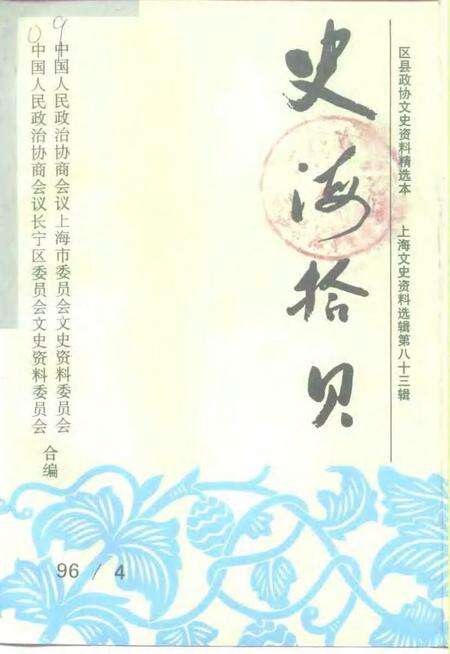 区县政协文史资料精选本 上海文史资料选辑第八十三辑
史海拾贝
中国人民政治协商会议上海市委员会文史资料委员会
中国人民政治协商会议长宁区委员会文史资料委员会
合编
96 / 4